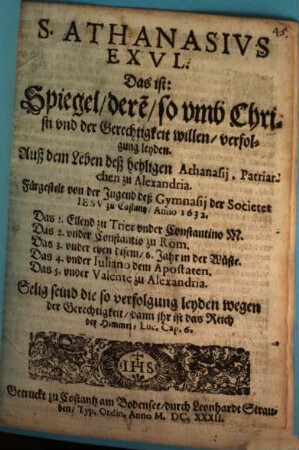 S. ATHANASIVS
EXVL.
Das ist:
Spiegel/derē/so vmb Chri-
sti vnd der Gerechtigkeit willen/verfol-
gung leyden.
Auß dem Leben deß heyligen Athanasij, Patriar-
chen zu Alexandria.
Fürgestelt von der Jugend deß Gymnasij der Societet
IESV zu Costantz/Anno 1632.
Das 1. Ellend zu Trier vnder Constantino M.
Das 2. vnder Constantio zu Rom.
Das 3. vnder eben disem/6. Jahr in der Wüste.
Das 4. vnder Iuliano dem Apostaten.
Das 5. vnder Valente zu Alexandria.
Selig seind die so verfolgung leyden wegen
der Gerechtigkeit/dann ihr ist das Reich
der Himmel, Luc. Cap. 6.
IHS
Getruckt zu Costantz am Bodensee/durch Leonhardt Strau-
ben/Typ. Ordin. Anno M. DC. XXXII.